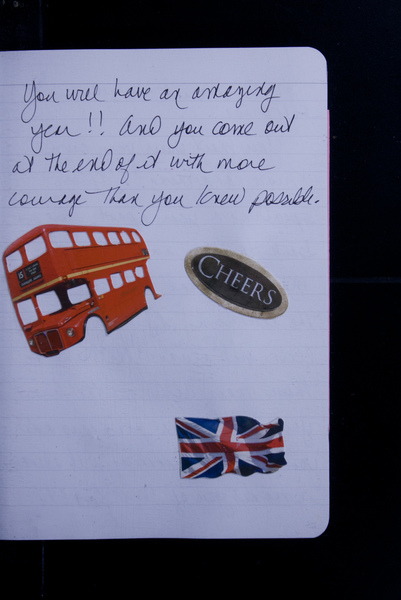 You will have an amazing
year!! And you come out
at the end of it with more
courage than you knew possible.
CHEERS
15